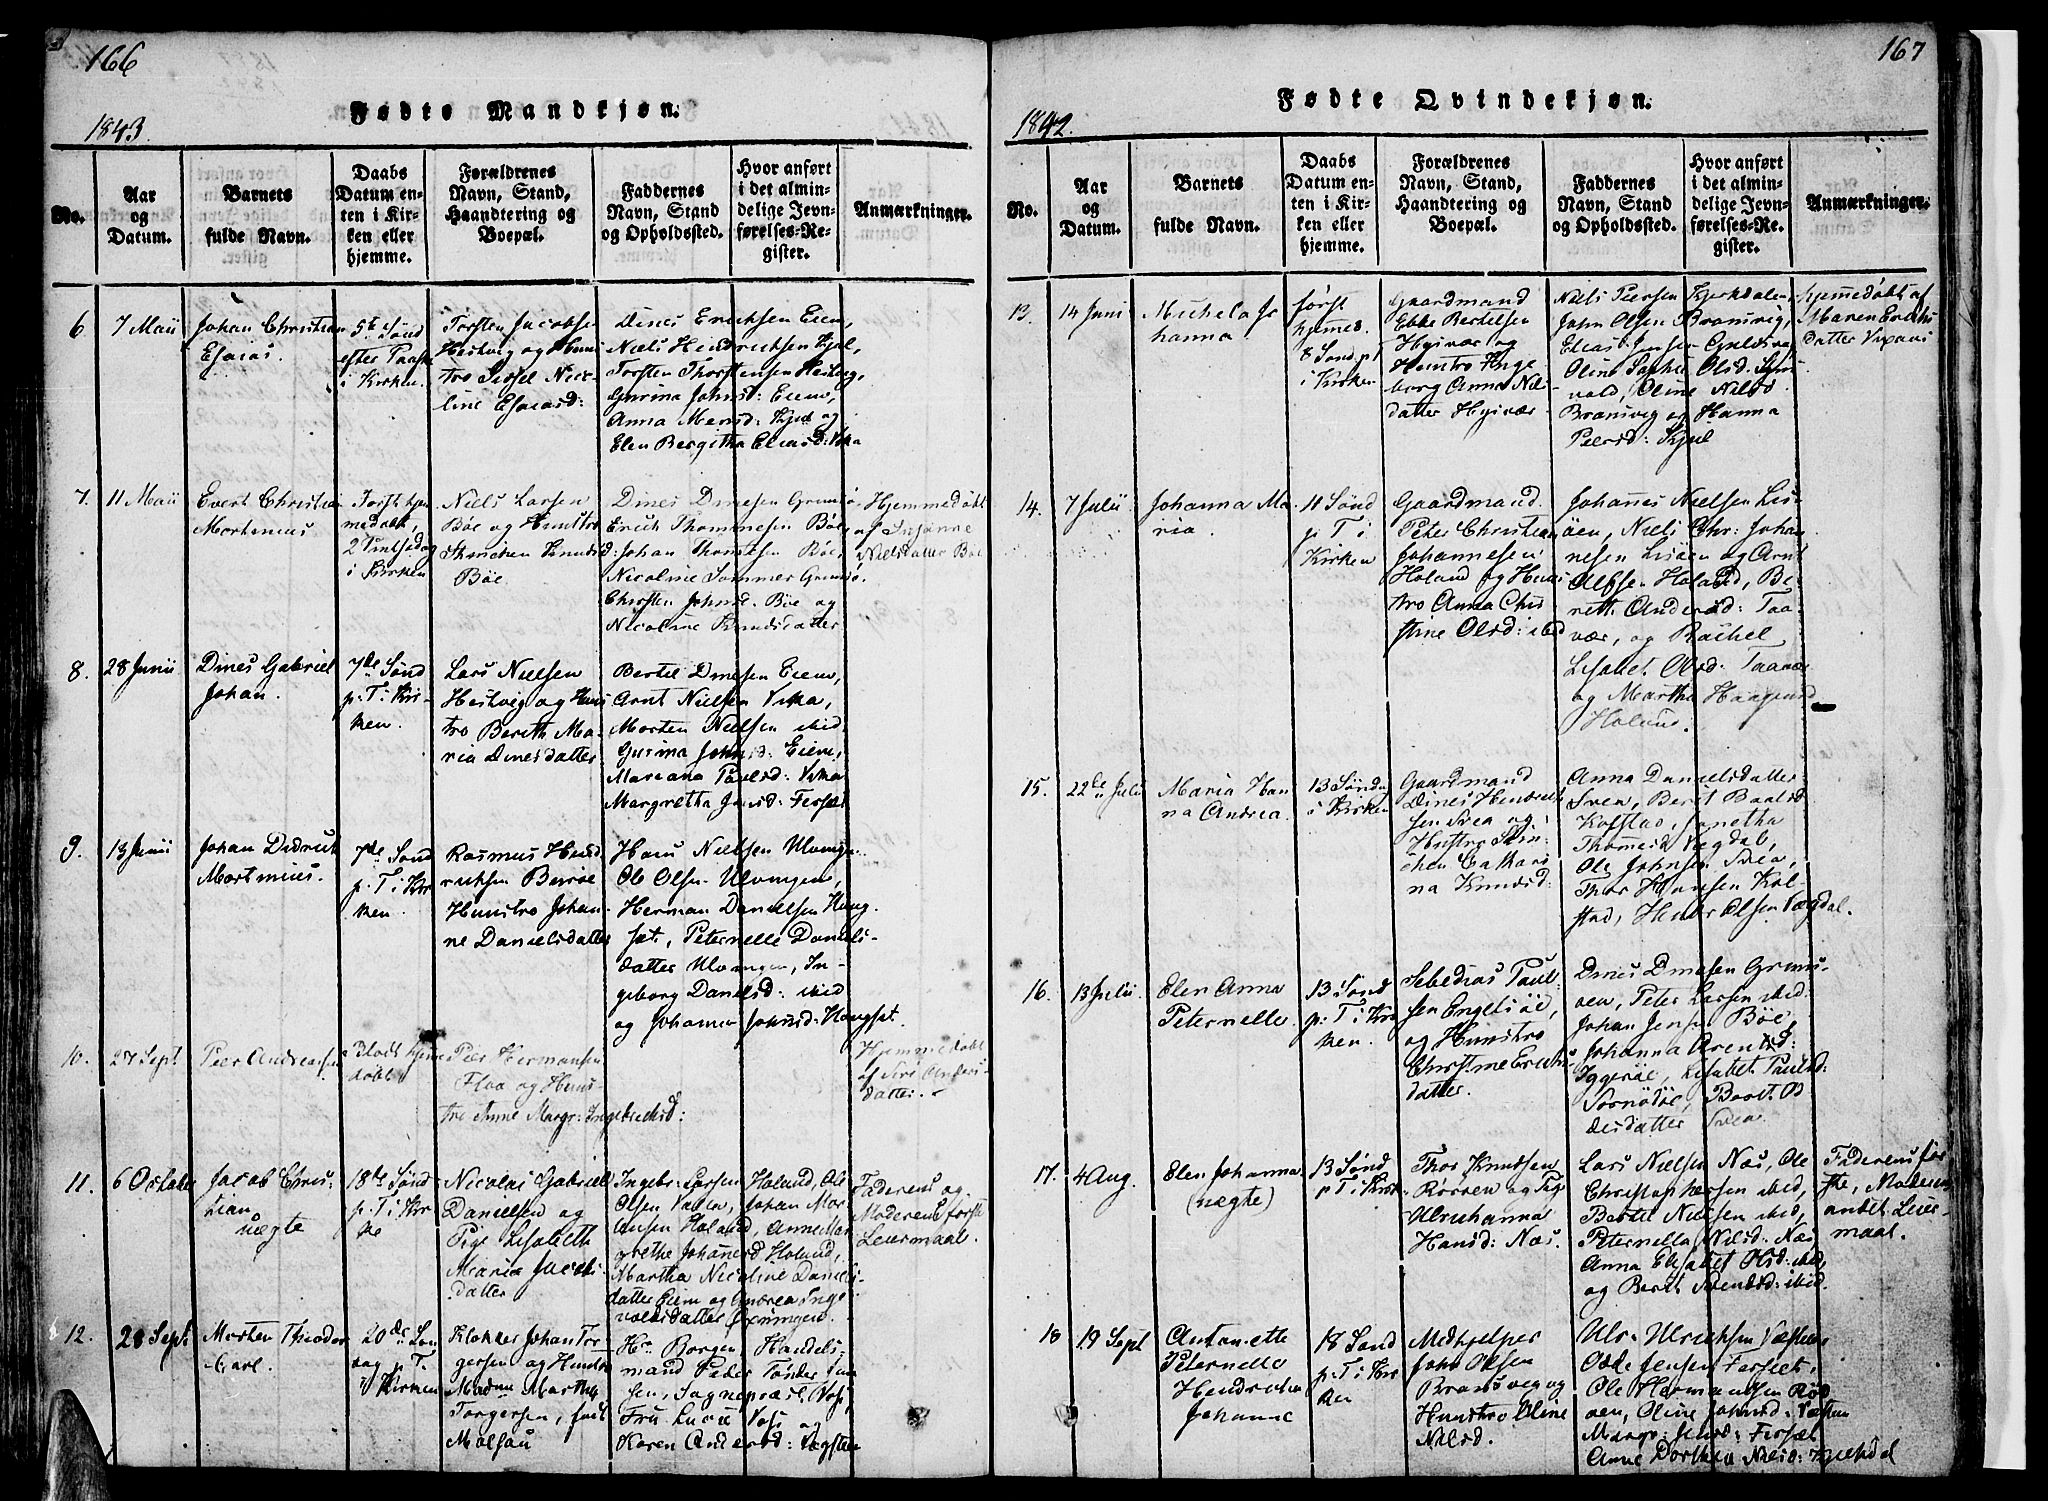 166
Fødte Mandkjøn.
1843.
No.
Aar
og
Datum.
Barnets
fulde Navn.
Daabs
Datum en-
ten i Kir-
ken eller
hjemme.
Forældrenes
Navn, Stand,
Haandtering og
Boepæl.
Faddernes
Navn, Stand
og Opholdssted.
Hvor anført
i det almin-
delige Jevn-
førelses-Re-
gister.
Anmærkninger.
6
7 Maii
Johan Christian
Esaias.
5te Sønd
efter Paaske
i Kirken.
Torsten Jacobsen
Hestvig og Huus
tro Sissel Nico-
line Esaiasd:
Dines Eriksen Eiem,
Niels Hendriksen Kjul,
Torsten Thorstensen Hestvig,
Gurina Johnsd: Eiem,
Anna Monsd: Kjul og
Elen Bergitha Eliasd: Vika
7.
11 Maii
Evert Christian
Mortinus
2 Pintsedag
i Kirken
Niels Larsen
Bøe og Huustro
Knudsd
Bøe
Dines Dinesen Grunsø
Erich Thommesen Bøe,
Johan Thomesen Bøe,
Nicoline Sommer Grunsø
Chirsten Johnsd: Bøe og
Nicoline Knudsdatter
Hjemmedøbt
af Susanne
Nielsdatter Bøe
8.
28 Junii
Dines Gabriel
Johan.
7de Sønd
p: T i Kir-
ken.
Lars Nielsen
Hestvig og Huus
tro Berith Ma-
ria Dinesdatter
Bertil Dinesen Eiem,
Arnt Nielsen Vika,
Morten Nielsen ibid
Gurina Johnsd: Eiem,
Mariana Paulsd: Vika
Margretha Jensd: Forsæt
9.
13 Junii
Johan Didrich
Mortinius.
7de Sønd
p: T i Kir
ken.
Rasmus Hend
richsen
Huustro Johan-
ne Danielsdatter
Hans Nielsen Ulvingen
Ole Olsen Ulvingen,
Herman Danielsen Haug-
sæt, Peternelle Daniels-
datter Ulvingen, In-
geborg Danielsd: ibid
og Johanna Johnsd: Haugsæt.
10.
27 Sept.
Peer Andreassen
Blodt hjem
døbt
Peer Hermansen
Floa og Huus-
tro Anne Margr: Ingebrichtsd:
Hjemmedøbt
af Siri Anders-
datter.
11.
6 October
Jacob Chris-
tian
uægte
18de Sønd
p: T i Kir
ke
Nicolai Gabriel
Danielsen og
Pige Lisabeth
Maria Jacobs
datter
Ingebr: Larsen Holand, Ole
Olsen Johan Mor
tensen Holand, Anne Mar
grethe Johansd Holand,
Martha Nicoline Daniels-
datter Eiem og Andrea Inge
valdsdatter Øxningen.
Faderens og
Moderens første
Leiermaal.
12.
28 Sept.
Morten Theodor
Carl.
20de Søn
dag p. T.
i Kirken
Klokker Johan Tor
gersen og Huustro
Madam Martha
Torgersen, født
Hr. Borgen Handels-
mand Peder Tønder Jan
sen, Sogneprest Vos,
Fru Lucie Vosi og
Karen Andersd: Vægsten
167
Fødte Qvindekjøn.
1842.
No.
Aar
og
Datum.
Barnets
fulde Navn.
Daabs
Datum en-
ten i Kir-
ken eller
hjemme.
Forældrenes
Navn, Stand,
Haandtering og
Boepæl.
Faddernes
Navn, Stand
og Opholdssted.
Hvor anført
i det almin-
delige Jevn-
førelses-Re-
gister.
Anmærkninger.
13.
14 Juni
Michela Jo
hanna.
først
hjemed.
8 Sønd. p. t
i Kirken
Gaardmand
Ebbe Bertelsen
Hyivær og
Huustro Inge
borg Anna Nils
datter Hyivær
Niels Peersen Kjerkdalen,
John Olsen Bransvig,
Elias Jensen
Oline Sophie Olsd.
vold, Oline Nilsd
Bransvig og Hanna
Peersd: Kjul
hjemmedøbt af
Maren Erichs
datter Vixaas
14.
7 Julii
Johanna Ma
ria.
11 Sønd
p. T i
Kirken
Gaardmand.
Peter Christian
Johannesen
Holand og Huus
tro Anna Chir
stine Olsd: ibid
Johannes Nielsen Lis-
øen, Niels Chr: Johan
nesen Lisøen og Arnt
Olsen Holand, Be-
reth Andersd: Taa-
vær, og Rachel
Lisabet Olsd: Taavær
og Martha Haagensd
Holand.
15.
22de Julii
Maria Han
na Andrea.
13 Sønd
i Kirken
Gaardmand
Dines Hendrik
sen Svea og
Huustro Stin-
chen Cathari
na Knudsd:
Anna Danielsdatter
Svea, Berit Baalsd
Kolstad, Janetha
Thomesd Vægdal,
Ole Johnsen Svea,
Thor Hansen Kol-
stad, Henr Olsen Vægdal.
16.
13 Julii
Elen Anna
Peternelle
13 Sønd
p: T i Kir
ken.
Sebedias Paul-
sen Engelsøe,
og Huustro
Christine Erichs
datter.
Dines Dinesen Gruns-
øen, Peter Larsen ibid.
Johan Jensen Bøe,
Johanna Arentsd:
Iggerøe, Lisabet Paulsd:
datter Svea.
17.
4 Aug.
Elen Johanna
(uægte)
13 Sønd
p T i Kirk-
Thor Knudsen
Rørøen og Pige
Ulrichanna
Hansd: Næs.
Lars Nielsen Næs, Ole
Christophersen ibid,
Bertil Nielsen ibid,
Peternella Nilsd: Næs
Anna Elisabet Olsd: ibid,
og Berit Svendsd: ibid.
Faderens før
ste, Moderens
andet Leier-
maal.
18
19 Sept
Antonette
Peternelle
Hendricha
Johanne
18 Sønd
p: T i Kir
ken
Medhjelper
John Olsen
Bransvig og
Huustro Oline
Nilsd.
Ulr. Ulrichsen Væsten
Odde Jensen Forsæt.
Ole Hermansen Rød
øen, Oline Johnsd: Væsten
Margr: Jensd: Forsæt
Anne Dorthea Nilsd: Kjerkdal